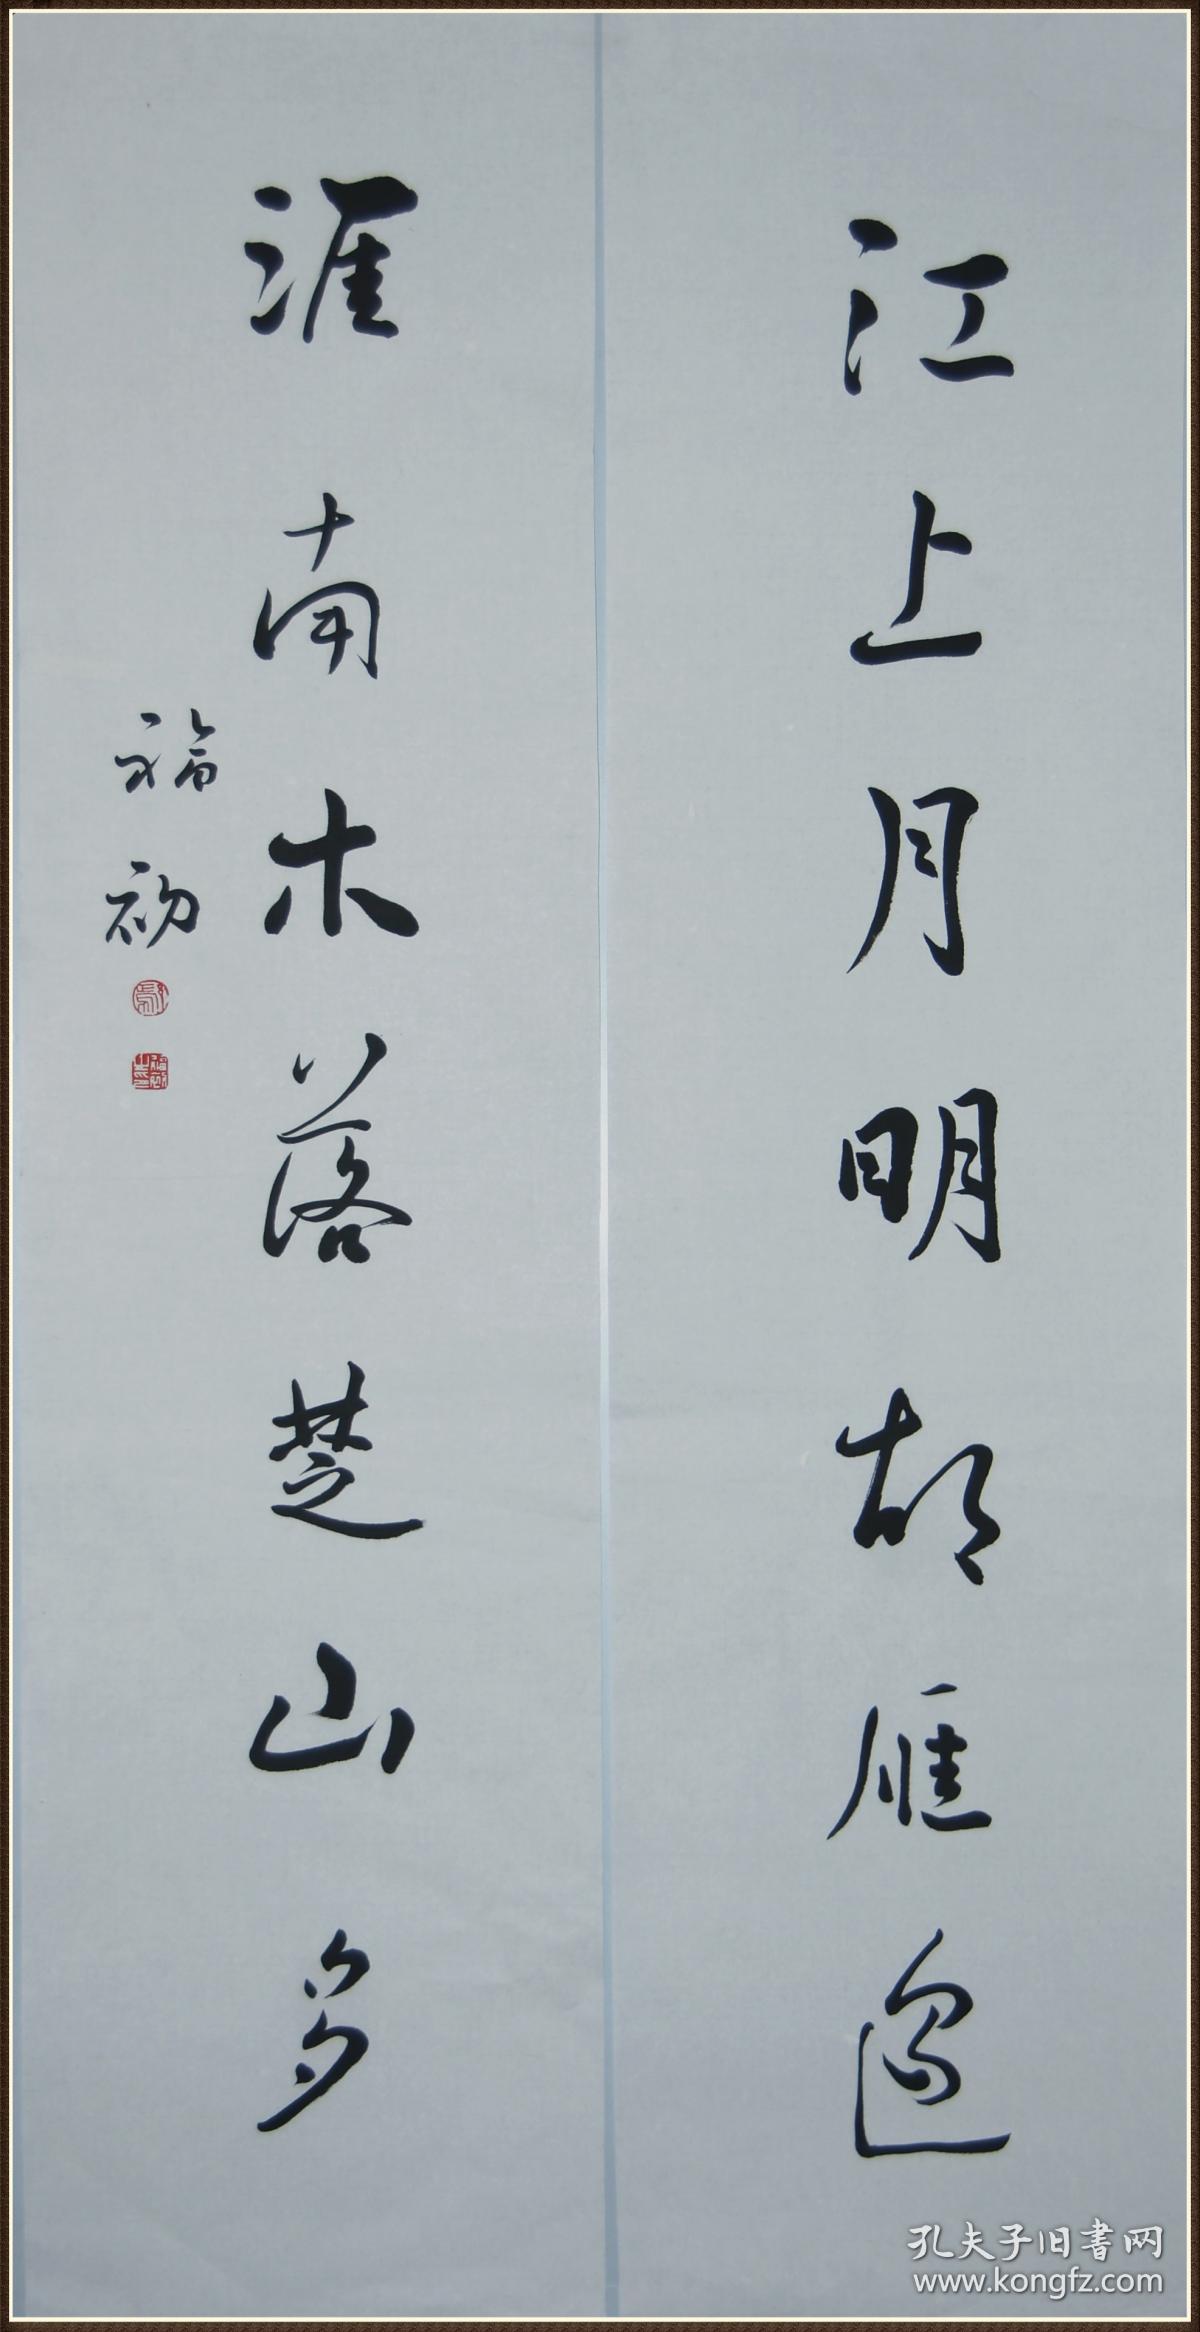 江上月明胡雁過
淮南木落楚山多
福初
孔夫子旧書网
www.kongfz.com